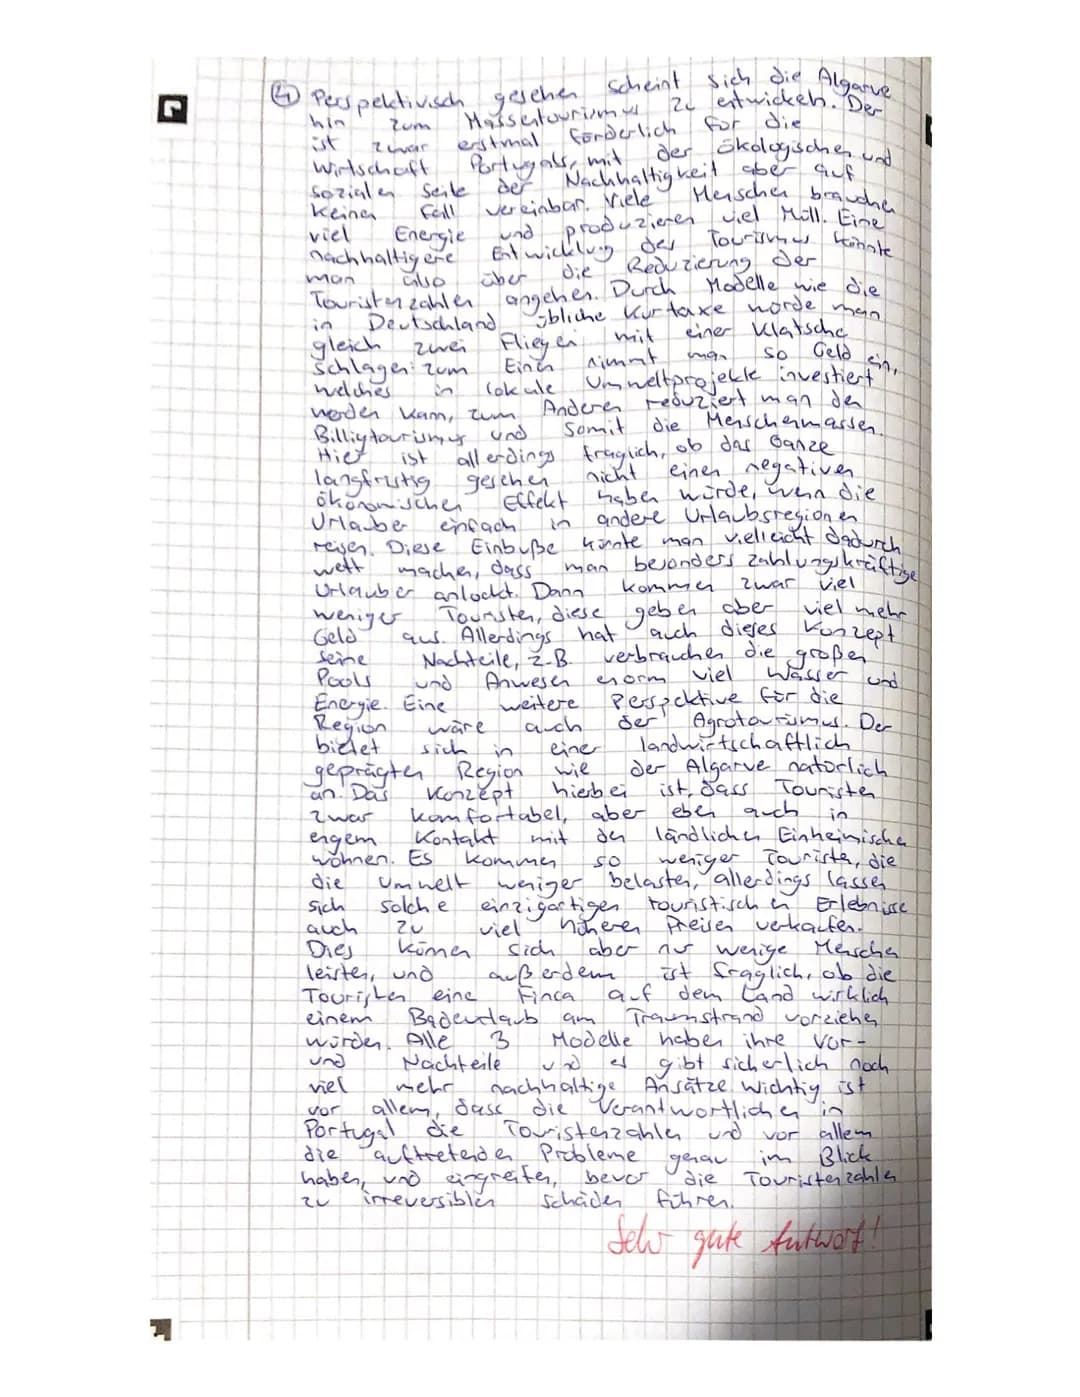 ④ Perspektivisch gesehen scheint sich die Algarve
hin zum Massentourismus zu entwickeln. Der
ist zwar erstmal förderlich für die
Wirtschaft Portugals, mit der ökologischen und
sozialen Seite der Nachhaltigkeit aber auf
keinen Fall vereinbar. Viele Menschen brauchen
viel Energie und produzieren viel Müll. Eine
nachhaltigere Entwicklung des Tourismus könnte
man also über die Reduzierung der
Touristenzahlen angehen. Durch Modelle wie die
in Deutschland übliche Kurtaxe würde man
gleich zwei Fliegen mit einer Klatsche
schlagen: zum Einen nimmt man so Geld ein,
welches in lokale Umweltprojekte investiert
werden kann, zum Anderen reduziert man den
Billigtourismus und somit die Menschenmassen.
Hier ist allerdings fraglich, ob das Ganze
langfristig gesehen nicht einen negativen
ökonomischen Effekt haben würde, wenn die
Urlauber einfach in andere Urlaubsregionen
reisen. Diese Einbuße könnte man vielleicht dadurch
wett machen, dass man besonders zahlungskräftige
Urlauber anlockt. Dann kommen zwar viel
weniger Touristen, diese geben aber viel mehr
Geld aus. Allerdings hat auch dieses Konzept
seine Nachteile, z.B. verbrauchen die großen
Pools und Anwesen enorm viel Wasser und
Energie. Eine weitere Perspektive für die
Region wäre auch der Agrotourismus. Der
bietet sich in einer landwirtschaftlich
geprägten Region wie der Algarve natürlich
an. Das Konzept hierbei ist, dass Touristen
zwar komfortabel, aber eben auch in
engem Kontakt mit den ländlichen Einheimischen
wohnen. Es kommen so weniger Touristen, die
die Umwelt weniger belasten, allerdings lassen
sich solche einzigartigen touristischen Erlebnisse
auch zu viel höheren Preisen verkaufen.
Dies können sich aber nur wenige Menschen
leisten, und außerdem ist fraglich, ob die
Touristen eine Finca auf dem Land wirklich
einem Badeurlaub am Traumstrand vorziehen
würden. Alle 3 Modelle haben ihre Vor-
und Nachteile und es gibt sicherlich noch
viel mehr nachhaltige Ansätze. Wichtig ist
vor allem, dass die Verantwortlichen in
Portugal die Touristenzahlen und vor allem
die auftretenden Probleme genau im Blick
haben, und eingreifen, bevor die Touristenzahlen
zu irreversiblen Schäden führen.
Sehr gute Antwort!